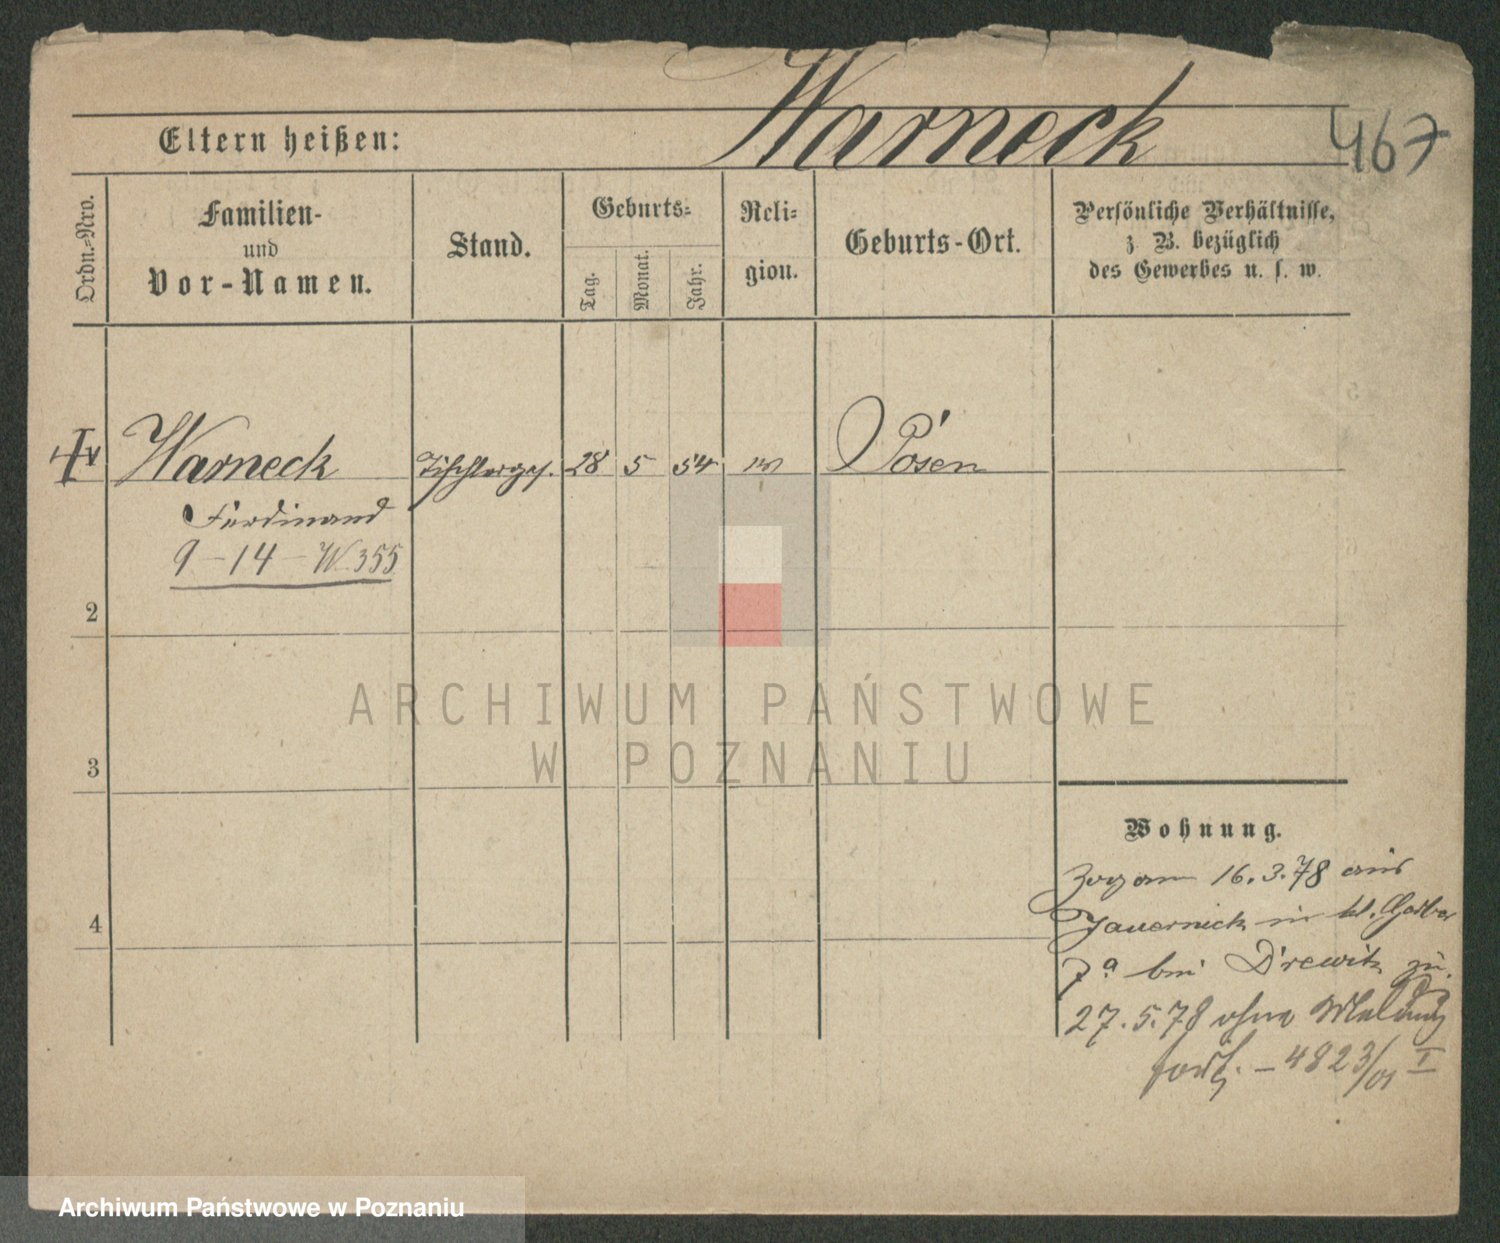 Warneck
467
Eltern heißen:
Ordn.-Nro.
Familien-
und
Vor-Namen.
Stand.
Geburts-
Tag.
Monat.
Jahr.
Reli-
gion.
Geburts-Ort.
Persönliche Verhältnisse,
z B. bezüglich
des Gewerbes u. s. w.
Warneck Tischlerges. 28 5 54 Posen
Ferdinand
9-14-W 355
2
3
4
ARCHIWUM PAŃSTWOWE
W POZNANIU
Wohnung.
Zog am 16.3.78 aus
Jauernick in kl. Gerber
7a bei Drewitz zu.
27.5.78 ohne Meldung
fort. - 4823/01 I
Archiwum Państwowe w Poznaniu